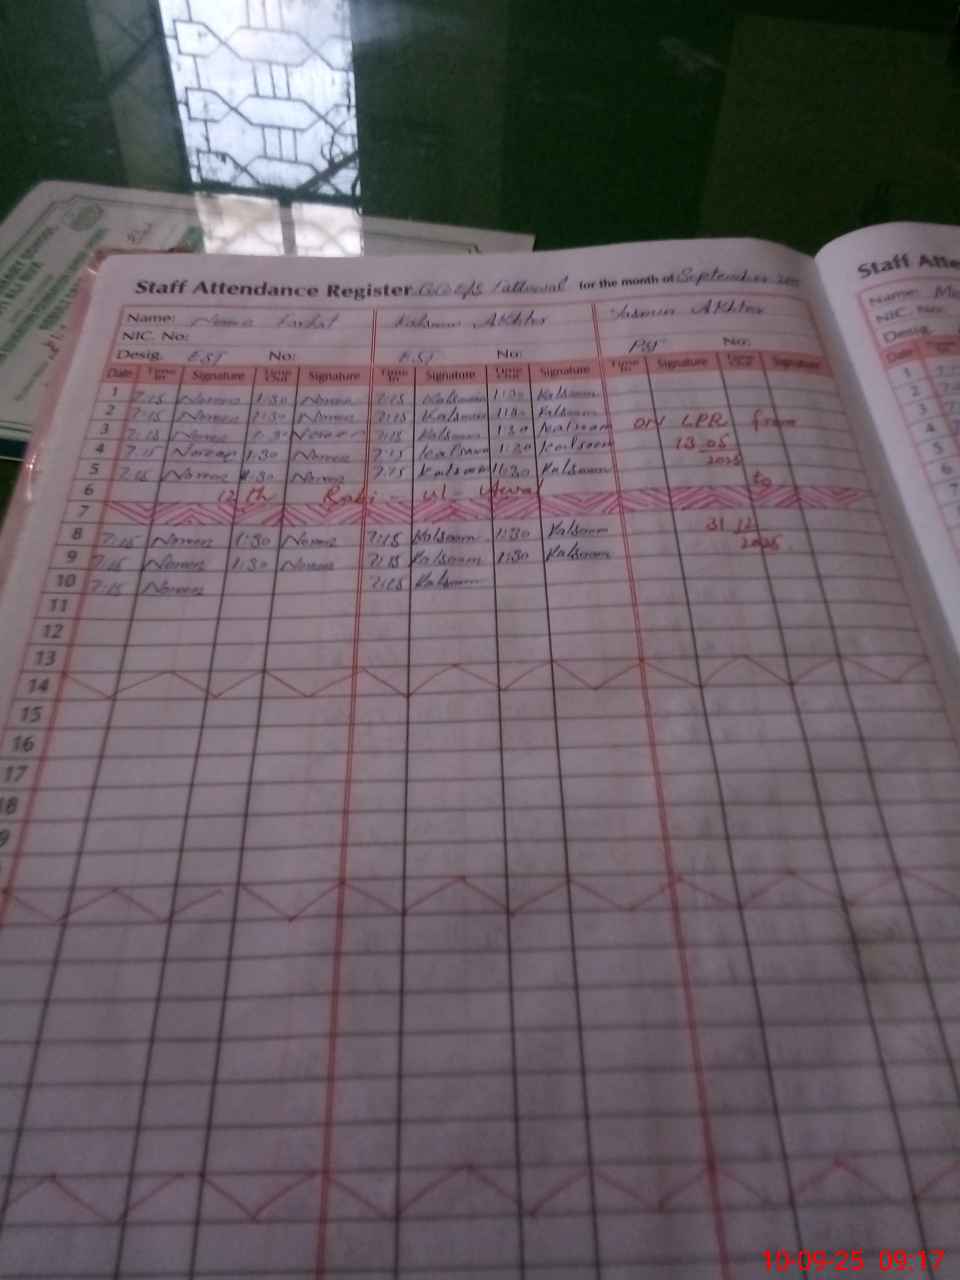 Staff Attendance Register for the month of September
Name: Kalsoom Akhter Yasmin Akhter
NIC. No:
Desig. EST No: EST No: No:
Date Time In Signature Time Out Signature Time In Signature Time Out Signature Time In Signature Time Out Signature
1 7:15 Noreen 1:30 Noreen 7:15 Kalsoom 1:30 Kalsoom
2 7:15 Noreen 1:30 Noreen 7:15 Kalsoom 1:30 Kalsoom
3 7:15 Noreen 1:30 Noreen 7:15 Kalsoom 1:30 Kalsoom ON LPR from
4 7:15 Noreen 1:30 Noreen 7:15 Kalsoom 1:30 Kalsoom 13.05
5 7:15 Noreen 1:30 Noreen 7:15 Kalsoom 1:30 Kalsoom 2025
6 12th Rabi-ul-Awal to
7
8 7:15 Noreen 1:30 Noreen 7:15 Kalsoom 1:30 Kalsoom 31.12
9 7:15 Noreen 1:30 Noreen 7:15 Kalsoom 1:30 Kalsoom 2025
10 7:15 Noreen 7:15 Kalsoom
11
12
13
14
15
16
17
18
9
Staff Atte
Name:
NIC. No:
Desig.
Date
1
2
3
4
5
6
7
10-09-25 09:17